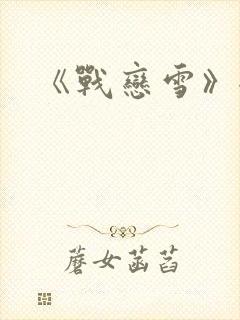 《戰戀雪》
蘑女菡萏